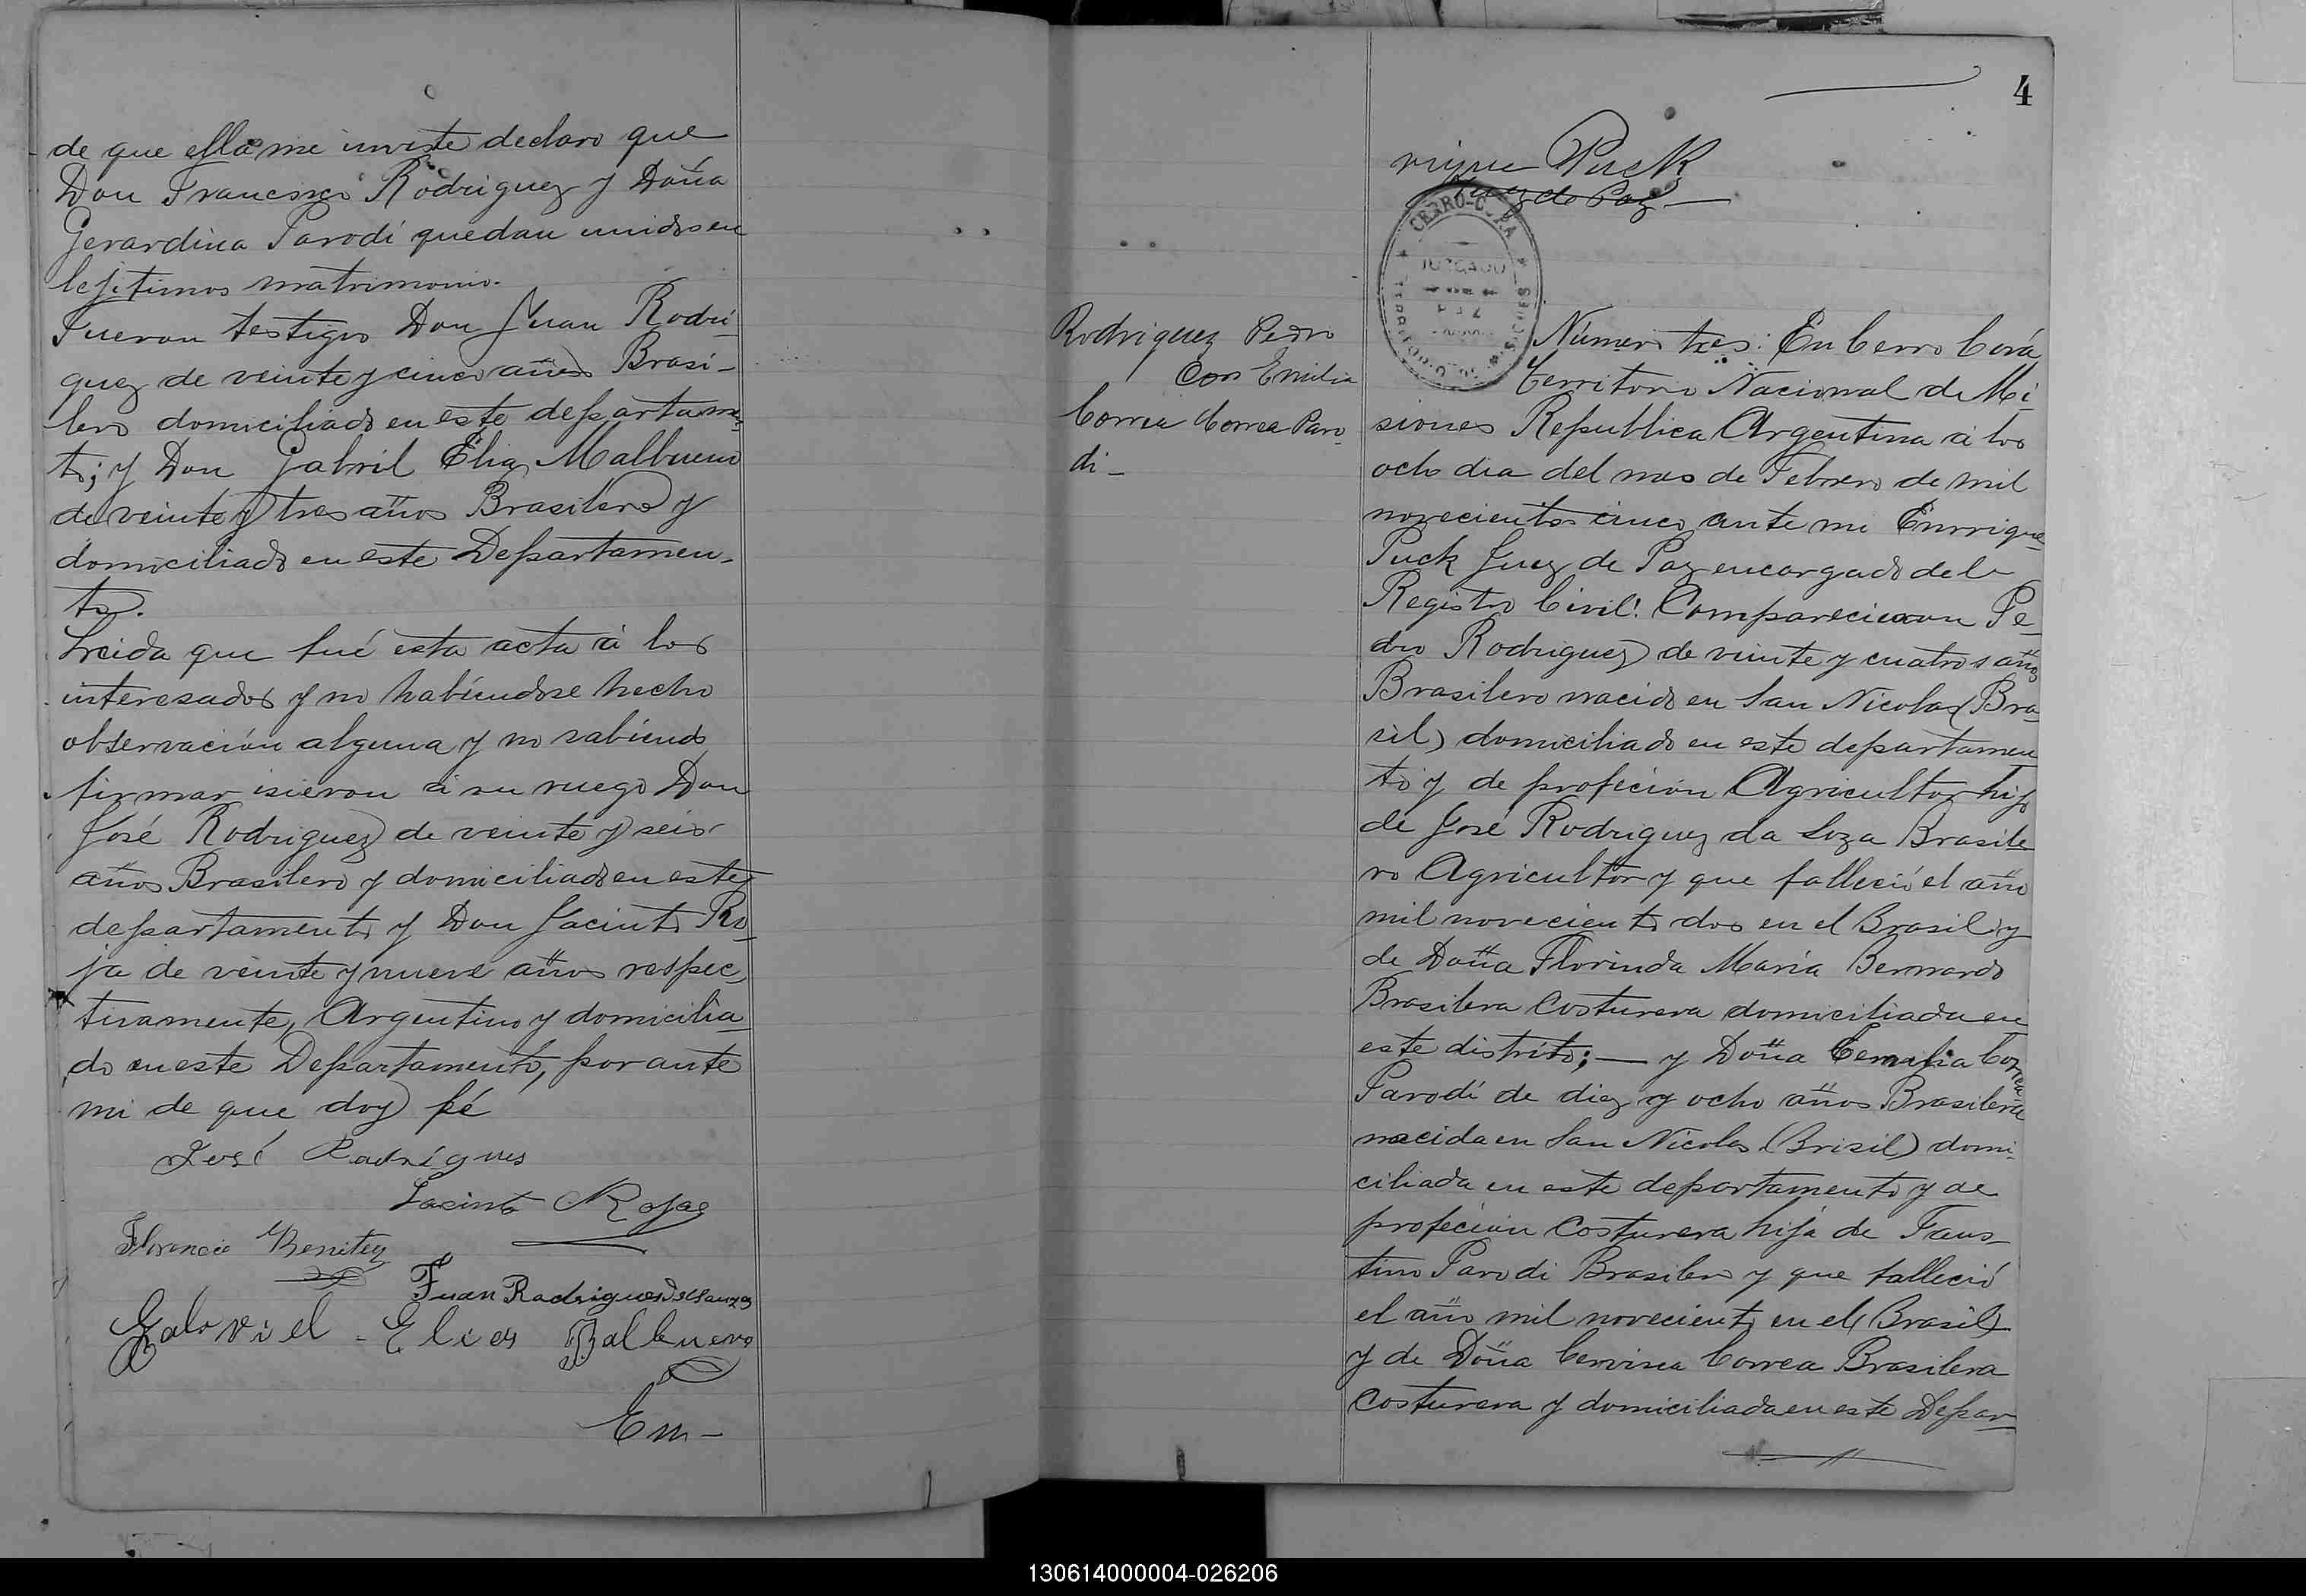 de que ella me inviste declaro que
Don Francisco Rodriguez y Doña
Gerardina Parodi quedan unidos en
lejitimos matrimonio.
Fueron testigos Don Juan Rodri-
guez de veinte y cinco años Brasi-
lero domiciliado en este departamen-
to; y Don Gabril Elia Malbueno
de veinte y tres años Brasilero y
domiciliado en este Departamen-
to.
Leida que fué esta acta á los
interesados y no habiendose hecho
observación alguna y no sabiendo
firmar isieron á su ruego Don
José Rodriguez de veinte y seis
años Brasilero y domiciliado en este
departamento y Don Jacinto Ro-
ja de veinte y nueve años respec-
tivamente, Argentino y domicilia-
do en este Departamento, por ante
mi de que doy fé
José Rodrígues
Jacinto Rojas
Florencio Benitez
Juan Rodrigues
Gabriel - Elias Balbueno
En-
4
rique Puck
Juez de Paz
CERRO-CORA
JUZGADO
DE
PAZ
TERRITORIO MISIONES
Rodriguez Pedro
Con Emilia
Correa Correa Paro-
di-
Número tres: En Cerro Corá
Territorio Nacional de Mi-
siones Republica Argentina á los
ocho dia del mes de Febrero de mil
novecientos cinco ante mi Enrrique
Puck Juez de Paz encargado del
Registro Civil: Comparecieron Pe-
dro Rodriguez de veinte y cuatro años
Brasilero nacido en San Nicolas (Bra-
sil) domiciliado en este departamen
to y de profeción Agricultor hijo
de José Rodriguez da Soza Brasile-
ro Agricultor y que falleció el año
mil novecientos dos en el Brasil y
de Doña Florinda María Bernardo
Brasilera Costurera domiciliada en
este distrito; — y Doña Correa
Parodí de diez y ocho años Brasilera
nacida en San Nicolas (Brisil) domi-
ciliada en este departamento y de
profeción Costurera hija de Faus-
tino Parodi Brasilero y que falleció
el año mil noveciento en el (Brasil)
y de Doña Correa Brasilera
Costurera y domiciliada en este Depar-
130614000004-026206